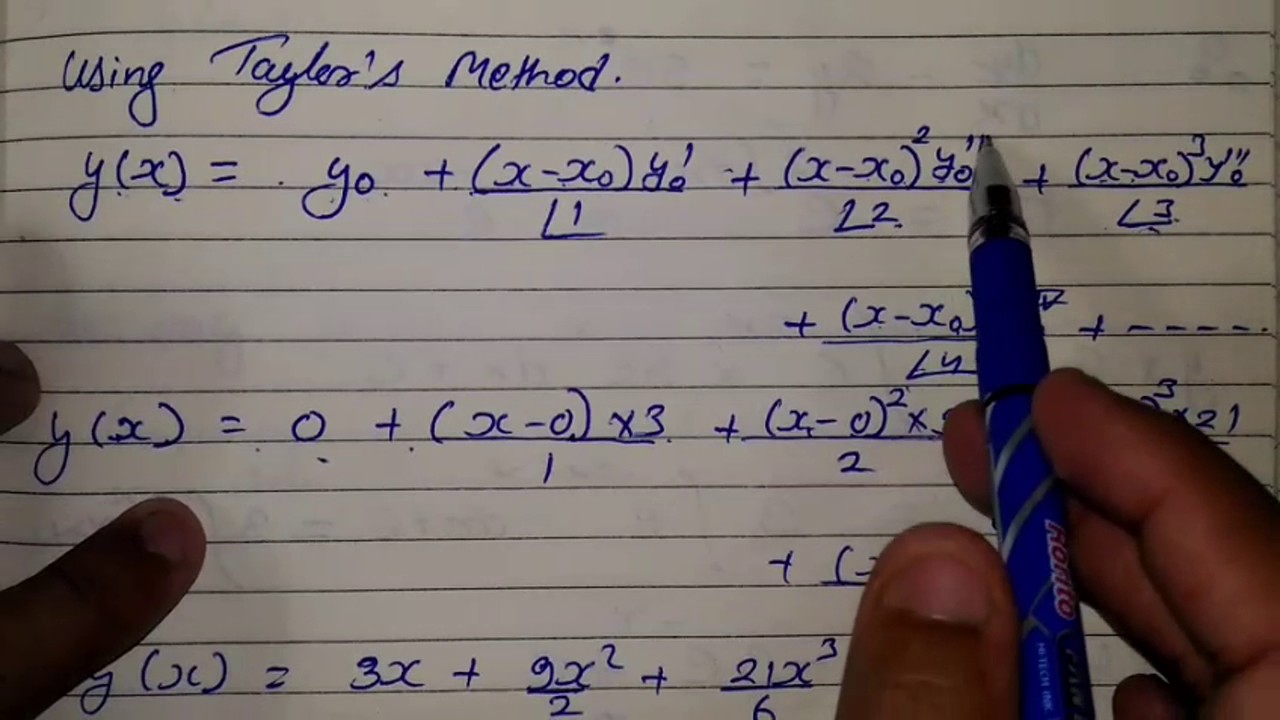 Using Taylor's Method.
y(x) = y₀ + (x-x₀)y₀'/∟1 + (x-x₀)²y₀''/∟2 + (x-x₀)³y₀'''/∟3
+ (x-x₀)/∟4 + -----
y(x) = 0 + (x-0)×3/1 + (x-0)²×/2 )³×21
+ (
y(x) = 3x + 9x²/2 + 21x³/6
Rorito
HI-TECH INK